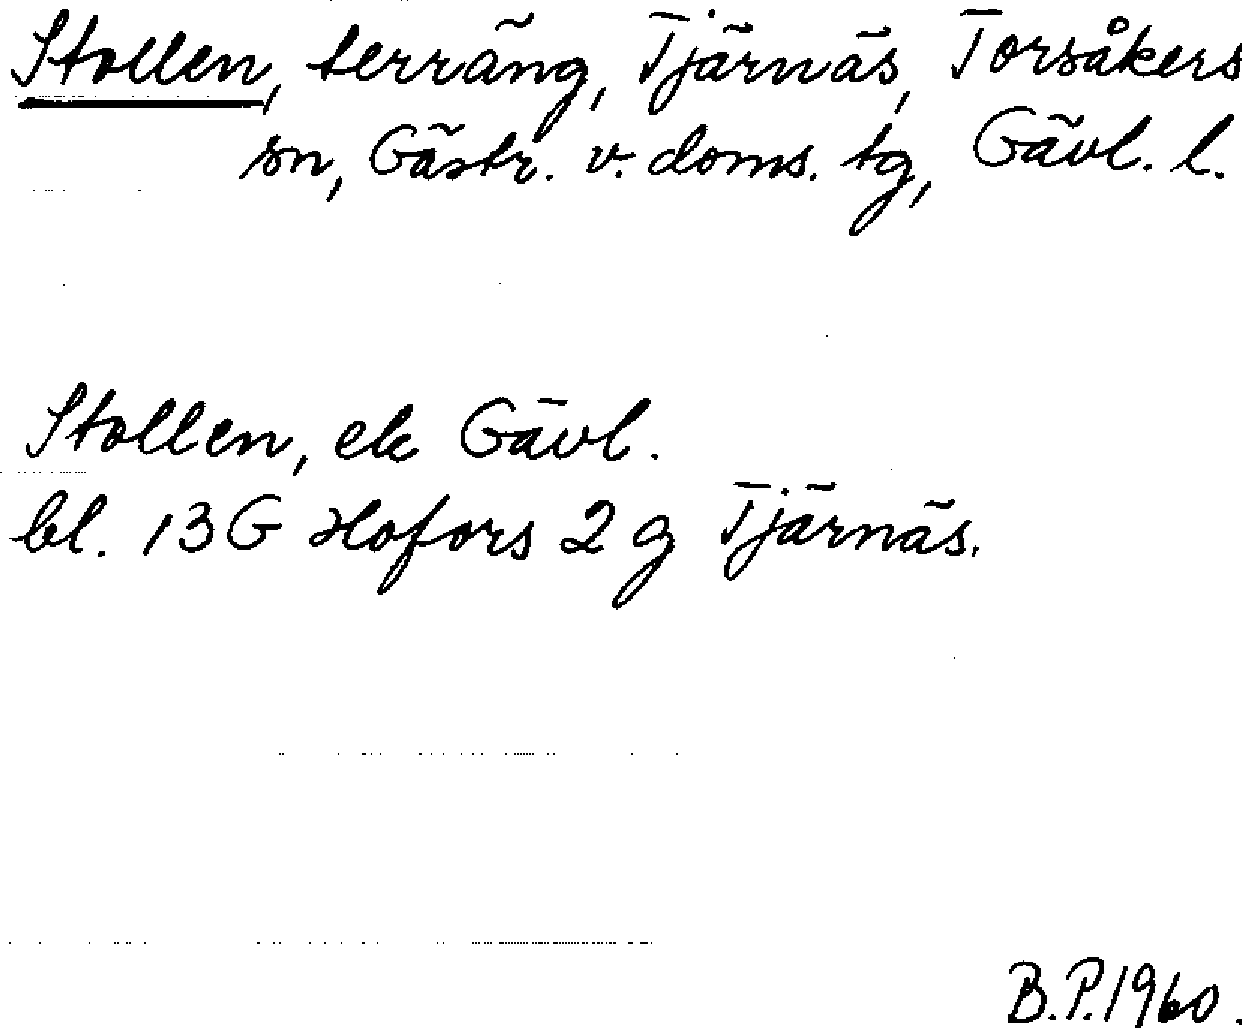 Stollen, terräng, Tjärnäs, Torsåkers
sn, Gästr. v. doms. tg, Gävl. l.
Stollen, ek Gävl.
bl. 13G Hofors 2 g Tjärnäs.
B.P. 1960.